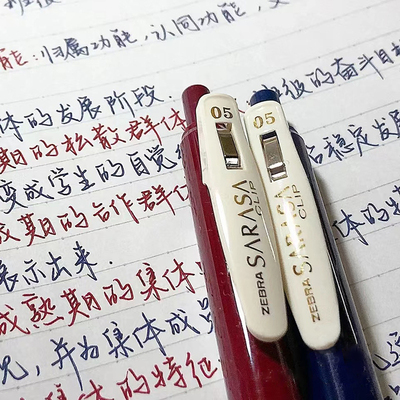 能：归属功能，认同功能，
体的发展阶段．
期的松散群体
级的奋斗目标
变成学生的自觉
稳定发展
成期的合作群体
体的特
表示出来．
成熟期的集体
况，并为集体成员
集体的特征
05
ZEBRA SARASA CLIP
05
ZEBRA SARASA CLIP